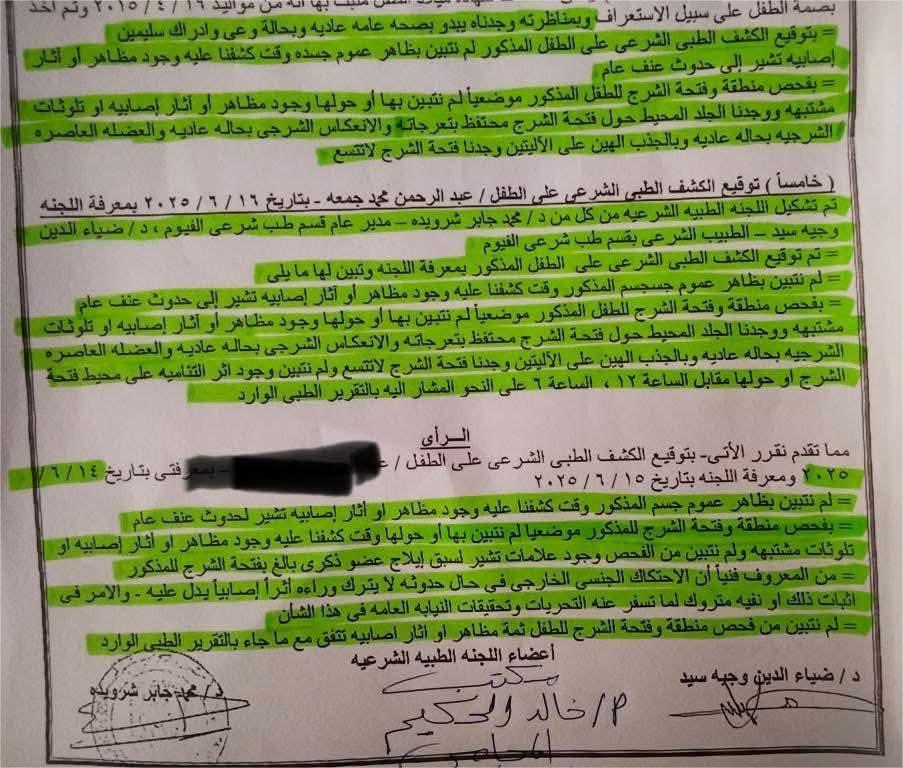 بصمة الطفل على سبيل الاستعراف وبمناظرته وجدناه يبدو بصحه عامه عاديه وبحالة وعى وادراك سليمين
= بتوقيع الكشف الطبى الشرعى على الطفل المذكور لم نتبين بظاهر عموم جسده وقت كشفنا عليه وجود مظاهر أو أثار
إصابيه تشير إلى حدوث عنف عام
= بفحص منطقة وفتحة الشرج للطفل المذكور موضعياً لم نتبين بها أو حولها وجود مظاهر أو أثار إصابيه او تلوثات
مشتبهه ووجدنا الجلد المحيط حول فتحة الشرج محتفظ بتعرجاته والانعكاس الشرجى بحاله عاديه والعضله العاصره
الشرجيه بحاله عاديه وبالجذب الهين على الأليتين وجدنا فتحة الشرج لاتتسع
( خامساً ) توقيع الكشف الطبى الشرعى على الطفل / عبد الرحمن محمد جمعه - بتاريخ ١٦ / ٦ / ٢٠٢٥ بمعرفة اللجنه
تم تشكيل اللجنه الطبيه الشرعيه من كل من د / محمد جابر شرويده – مدير عام قسم طب شرعى الفيوم ، د / ضياء الدين
وجيه سيد – الطبيب الشرعى بقسم طب شرعى الفيوم
= تم توقيع الكشف الطبى الشرعى على الطفل المذكور بمعرفة اللجنه وتبين لها ما يلى
= لم نتبين بظاهر عموم جسجسم المذكور وقت كشفنا عليه وجود مظاهر أو أثار إصابيه تشير إلى حدوث عنف عام
= بفحص منطقة وفتحة الشرج للطفل المذكور موضعياً لم نتبين بها أو حولها وجود مظاهر أو أثار إصابيه او تلوثات
مشتبهه ووجدنا الجلد المحيط حول فتحة الشرج محتفظ بتعرجاته والانعكاس الشرجى بحاله عاديه والعضله العاصره
الشرجيه بحاله عاديه وبالجذب الهين على الأليتين وجدنا فتحة الشرج لاتتسع ولم نتبين وجود اثر التئاميه على محيط فتحة
الشرج او حولها مقابل الساعة ١٢ ، الساعة ٦ على النحو المشار اليه بالتقرير الطبى الوارد
الـــرأى
مما تقدم نقرر الأتى- بتوقيع الكشف الطبى الشرعى على الطفل / – بمعرفتى بتاريخ ١٤ / ٦ /
٢٠٢٥ ومعرفة اللجنه بتاريخ ١٥ / ٦ / ٢٠٢٥
= لم نتبين بظاهر عموم جسم المذكور وقت كشفنا عليه وجود مظاهر أو أثار إصابيه تشير لحدوث عنف عام
= بفحص منطقة وفتحة الشرج للمذكور موضعيا لم نتبين بها أو حولها وقت كشفنا عليه وجود مظاهر أو أثار إصابيه او
تلوثات مشتبهه ولم نتبين من الفحص وجود علامات تشير لسبق إيلاج عضو ذكرى بالغ بفتحة الشرج للمذكور
= من المعروف فنياً أن الاحتكاك الجنسى الخارجى في حال حدوثه لا يترك وراءه أثراً إصابياً يدل عليه - والامر فى
اثبات ذلك او نفيه متروك لما تسفر عنه التحريات وتحقيقات النيابه العامه فى هذا الشأن
= لم نتبين من فحص منطقة وفتحة الشرج للطفل ثمة مظاهر او اثار اصابيه تتفق مع ما جاء بالتقرير الطبى الوارد
أعضاء اللجنه الطبيه الشرعيه
د / ضياء الدين وجيه سيد
د / محمد جابر شرويده
مكتب
م / خالد الحكيم
المحامى